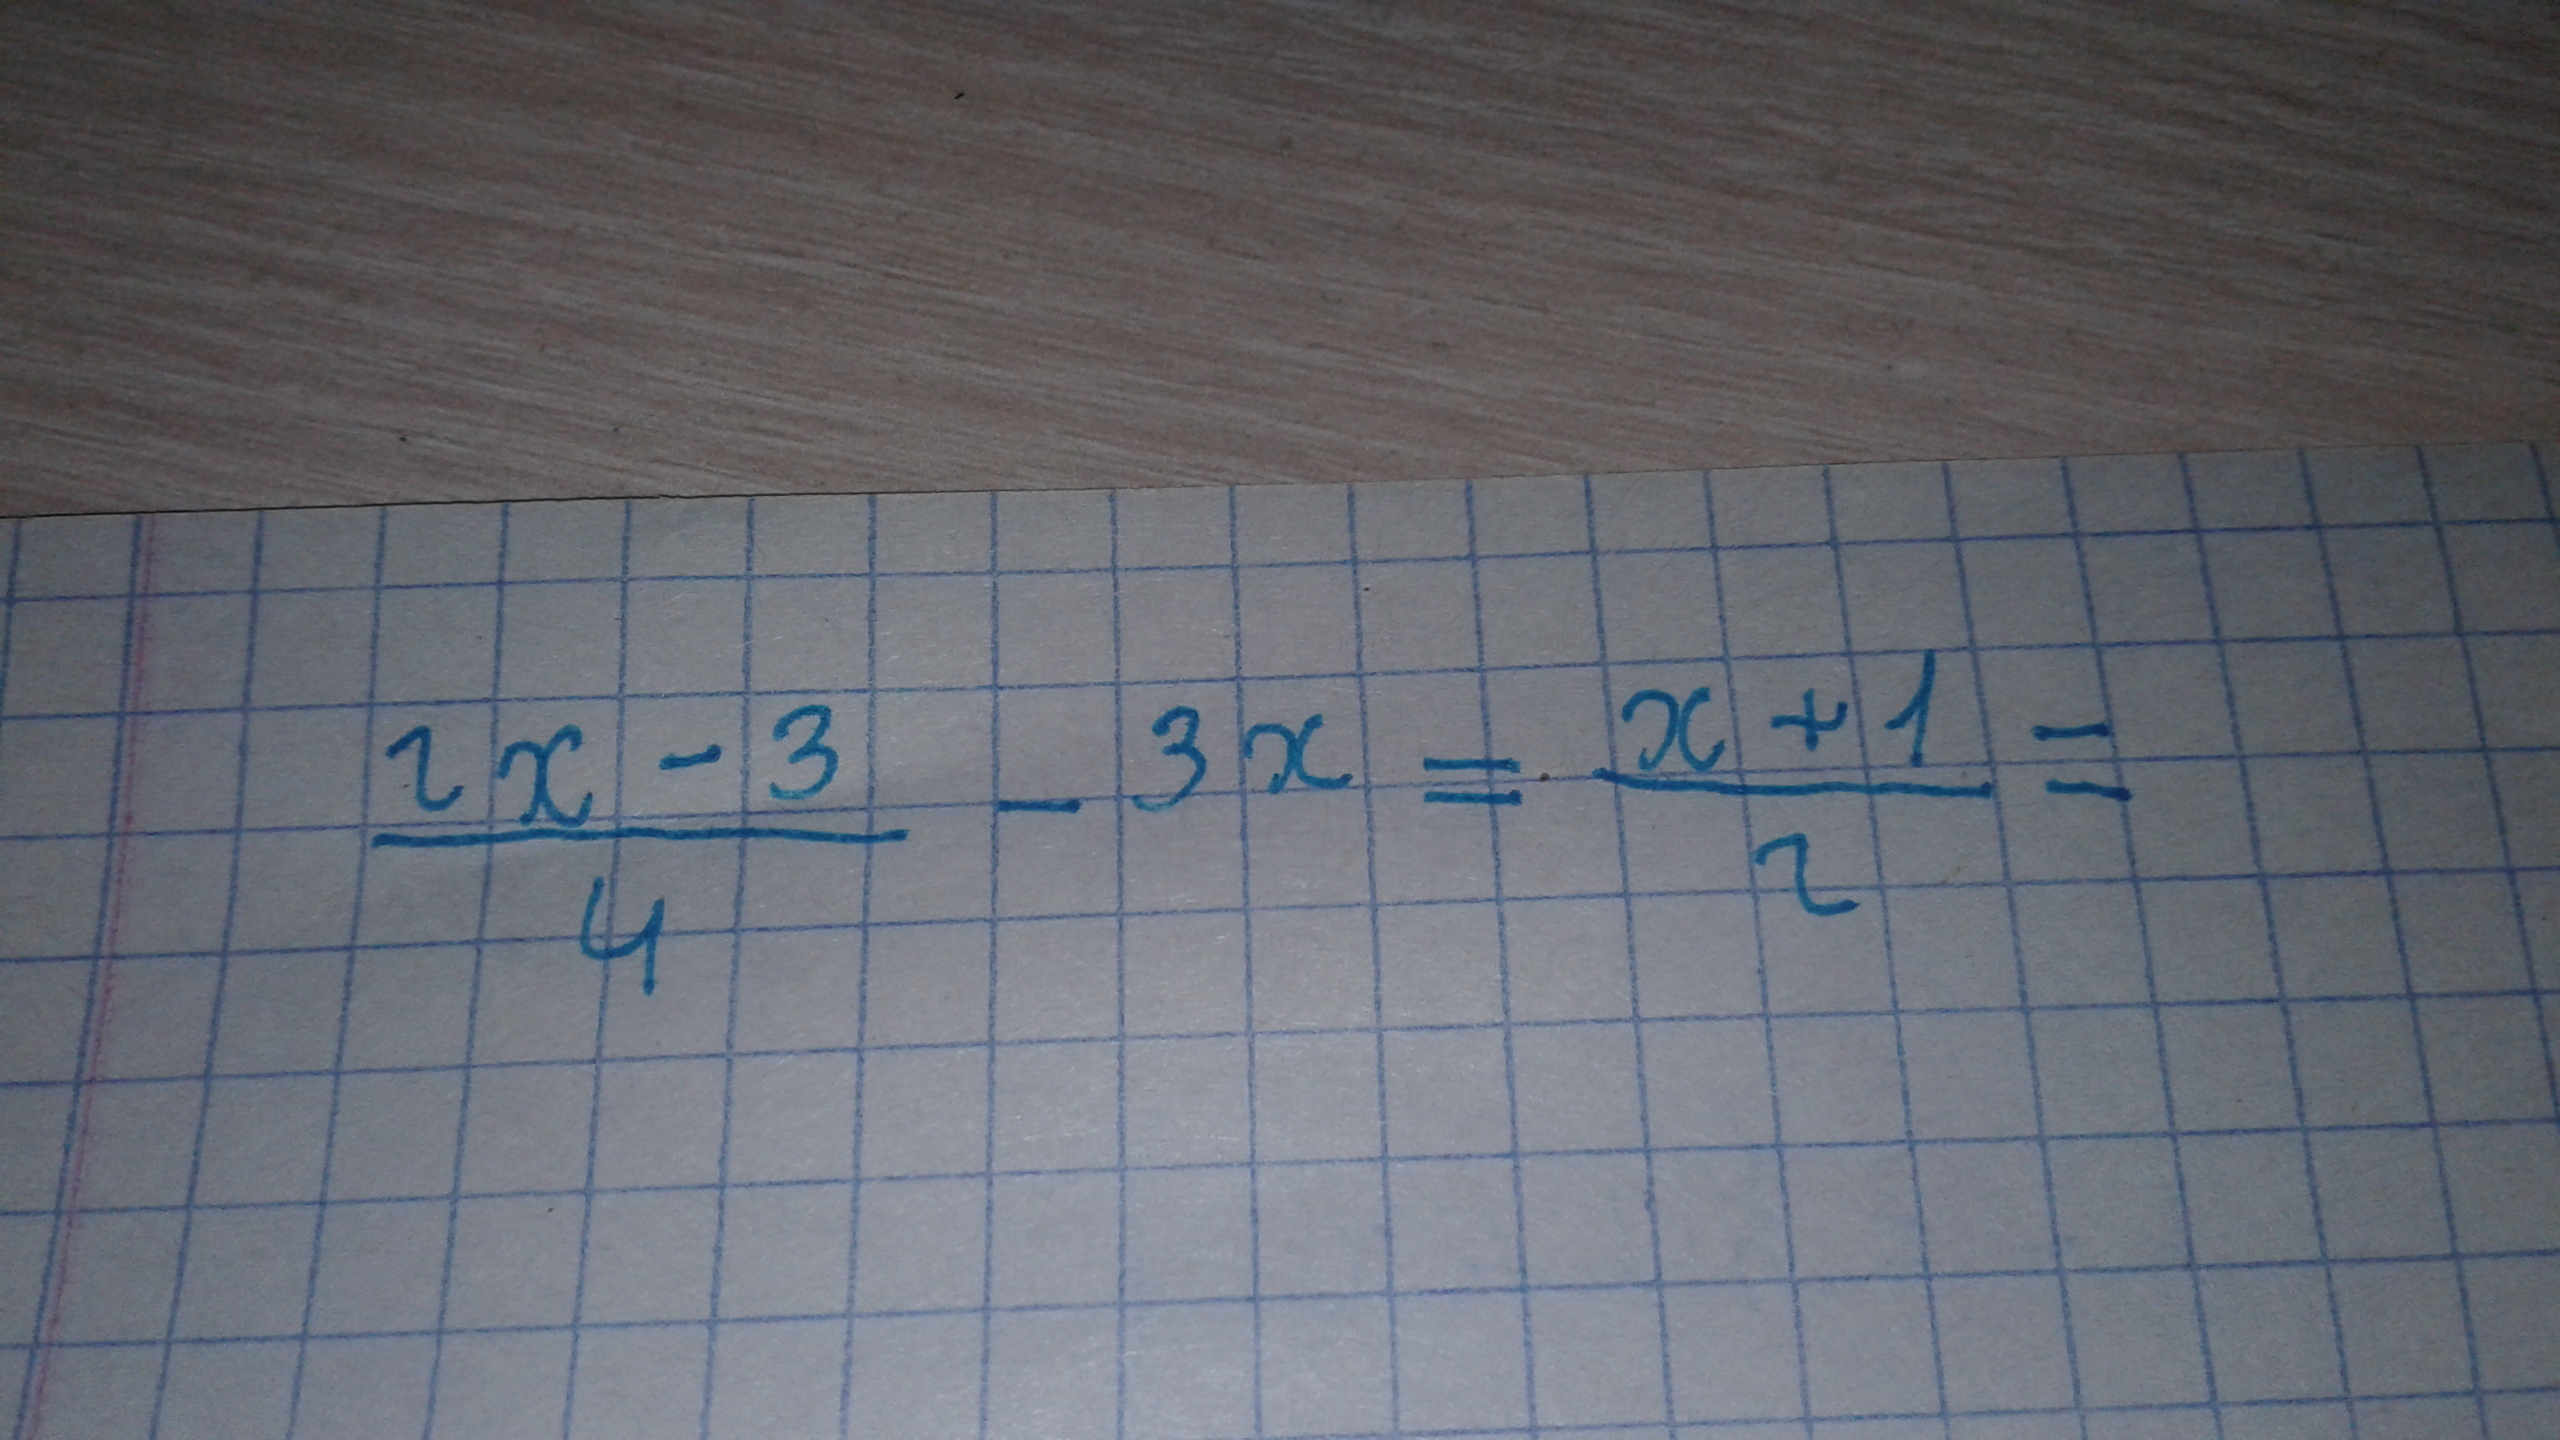 (2x - 3)/4 - 3x = (x + 1)/2 =